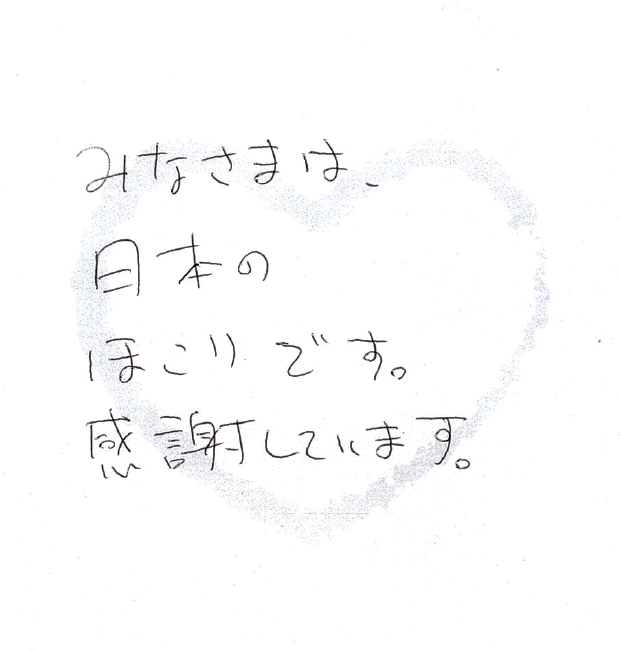 みなさまは、
日本の
ほこりです。
感謝しています。